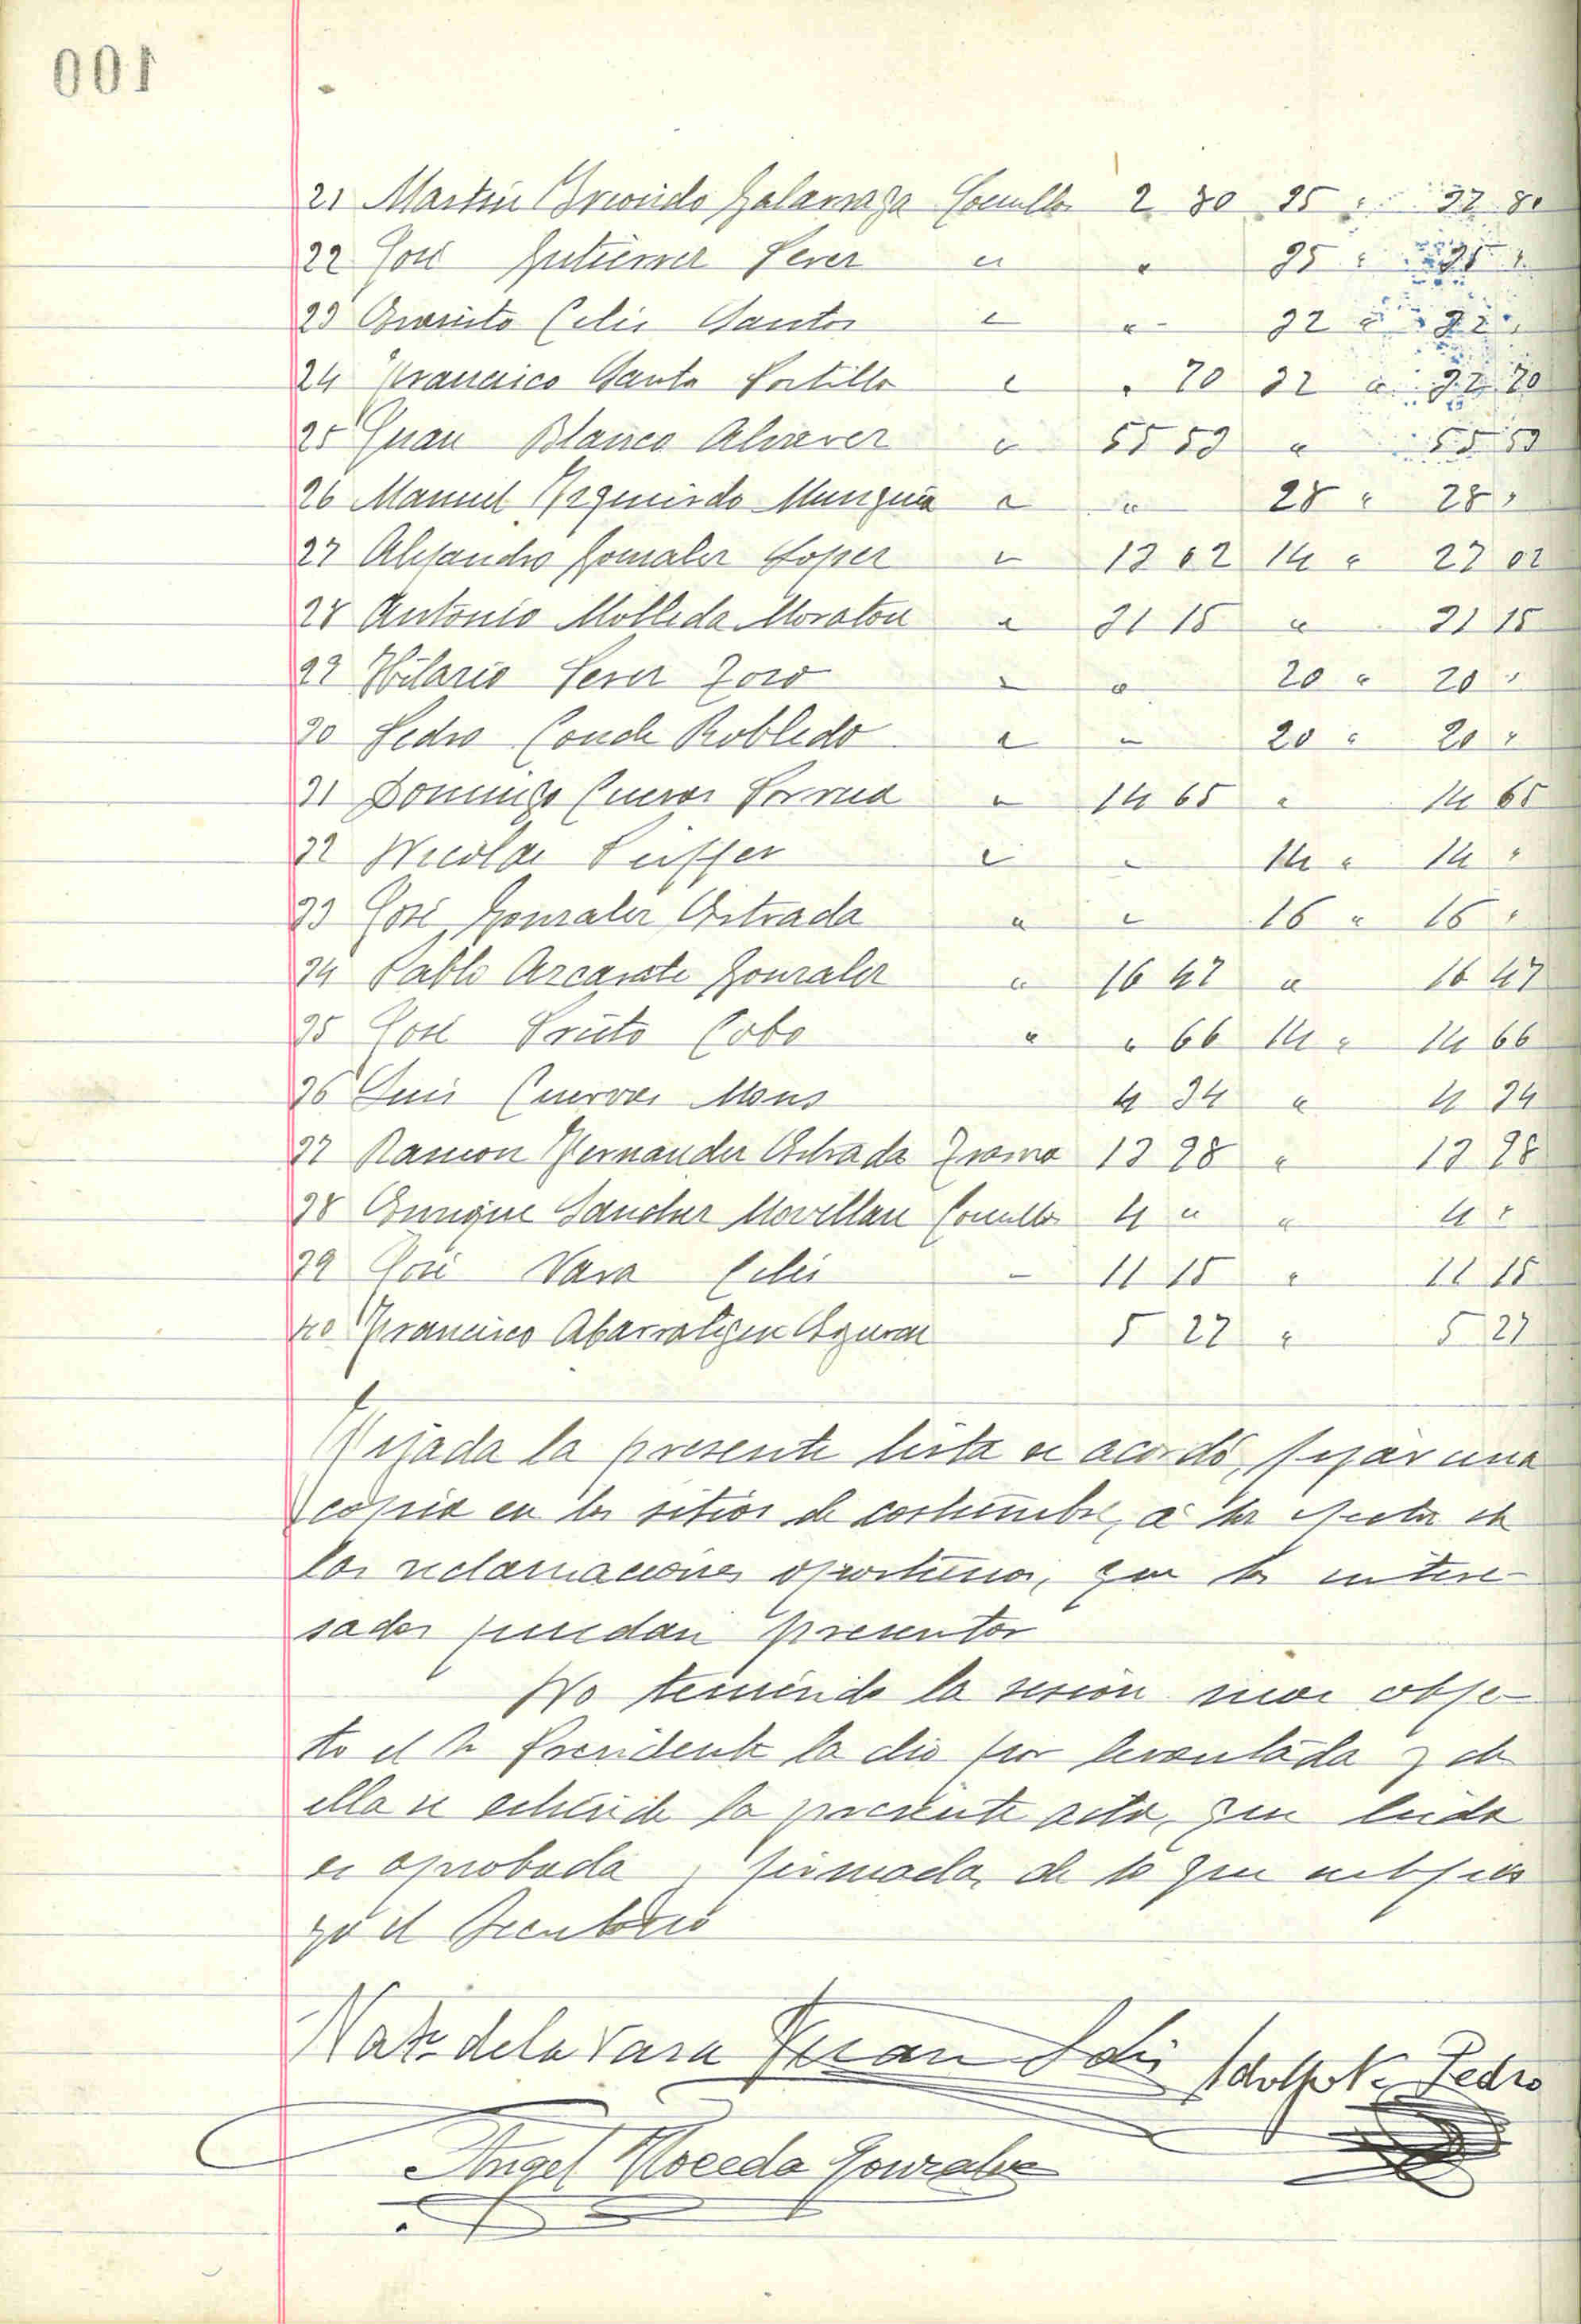 100
21 Martin Galarraga Comillas 2 80 35 " 37 80
22 José Gutierrez Perez " " 35 " 35 "
23 Celis Santos " " 32 " 32 "
24 Francisco Santos Portillo " " 70 32 " 32 70
25 Juan Blanco Alvarez " 55 59 " 55 59
26 Manuel Izquierdo Munguia " " 28 " 28 "
27 Alejandro Gonzalez Lopez " 13 02 14 " 27 02
28 Antonio Molleda Moraton " 21 15 " 21 15
29 Hilario Perez Zorso " " 20 " 20 "
30 Pedro Conde Robledo " " 20 " 20 "
31 Domingo Cuevas " 14 65 " 14 65
32 Nicolas Peiffer " " 14 " 14 "
33 José Gonzalez Estrada " " 16 " 16 "
34 Pablo Azcarate Gonzalez " 16 47 " 16 47
35 José Prieto Cobo " " 66 14 " 14 66
36 Luis Cuevas Mons 4 34 " 4 34
37 Ramon Fernandez Estrada 13 98 " 13 98
38 Enrique Sanchez Movellan Comillas 4 " " 4 "
39 José Vara Celis - 11 15 " 11 15
40 Francisco 5 27 " 5 27
Fijada la presente lista se acordó, fijar una
copia en los sitios de costumbre, a los efectos de
las reclamaciones oportunas, que los intere-
sados puedan presentar
No teniendo la sesion mas obje-
to el Sr Presidente la dió por levantada y de
ella se extiende la presente acta, que leida
es aprobada y firmada, de lo que certifico
yo el Secretario
Nat. de la Vara Juan Solis Adolfo V. Pedro
Angel Noceda Gonzalez